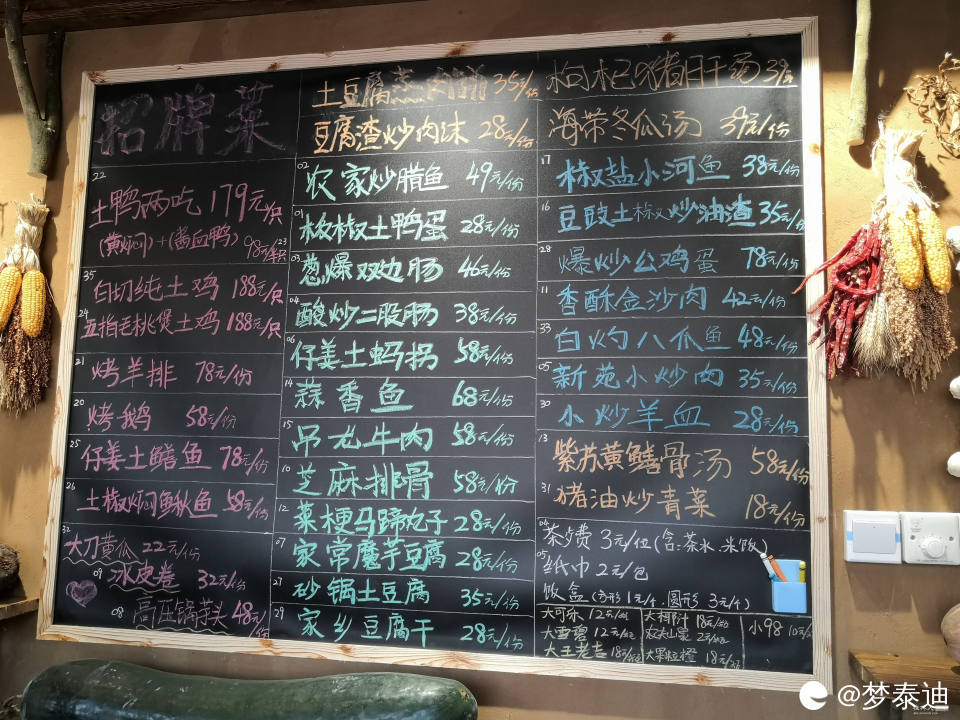 招牌菜
22
土鸭两吃 179元/只
(黄焖)+(酱血鸭) 98元/半只 23
35
白切纯土鸡 188元/只
24
五指毛桃煲土鸡 188元/只
21 烤羊排 78元/份
20 烤鹅 58元/份
25 仔姜土鳝鱼 78元/份
26 土椒焖鳅鱼 58元/份
32 大刀黄瓜 22元/份
09 冰皮卷 32元/份
08 高压锅芋头 48元/份
土豆腐蒸肉 35/份
豆腐渣炒肉沫 28元/份
02 农家炒腊鱼 49元/份
01 桉椒土鸭蛋 28元/份
03 葱爆双边肠 46元/份
04 酸炒二股肠 38元/份
06 仔姜土蚂拐 58元/份
14 蒜香鱼 68元/份
15 吊龙牛肉 58元/份
10 芝麻排骨 58元/份
12 菜梗马蹄丸子 28元/份
07 家常魔芋豆腐 28元/份
27 砂锅土豆腐 35元/份
29 家乡豆腐干 28元/份
枸杞猪肝汤 39元
海带冬瓜汤 39元/份
17 椒盐小河鱼 38元/份
16 豆豉土椒炒油渣 35元/份
28 爆炒公鸡蛋 78元/份
11 香酥金沙肉 42元/份
33 白灼八爪鱼 48元/份
05 新苑小炒肉 35元/份
30 小炒羊血 28元/份
13 紫苏黄鳝骨汤 58元/份
31 猪油炒青菜 18元/份
06 茶费 3元/位(含:茶水.米饭)
05 纸巾 2元/包
饭盒 (方形 1元/个.圆形 3元/个)
大可乐 12元/瓶
大雪碧 12元/瓶
大王老吉 18元/瓶
大椰汁 18元/瓶
农夫山泉 2元/瓶
大果粒橙 18元/瓶
小98 10元/
@梦泰迪